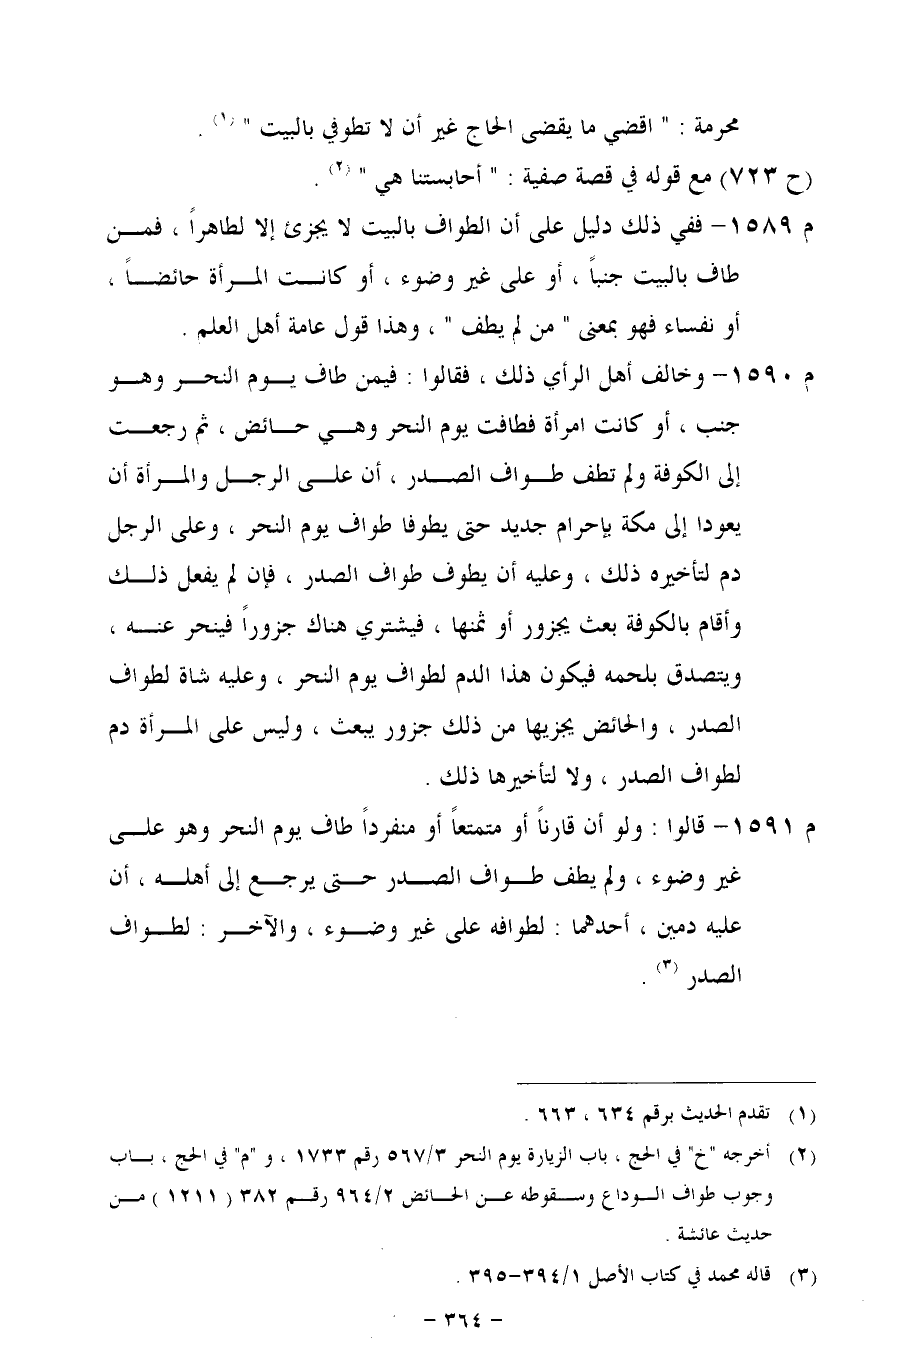 محرمة : " اقضي ما يقضى الحاج غير أن لا تطوفي بالبيت " (١) .
(ح ٧٢٣) مع قوله في قصة صفية : " أحابستنا هي " (٢) .
م ١٥٨٩- ففي ذلك دليل على أن الطواف بالبيت لا يجزئ إلا لطاهراً ، فمن
طاف بالبيت جنباً ، أو على غير وضوء ، أو كانت المرأة حائضاً ،
أو نفساء فهو بمعنى " من لم يطف " ، وهذا قول عامة أهل العلم .
م ١٥٩٠- وخالف أهل الرأي ذلك ، فقالوا : فيمن طاف يوم النحر وهو
جنب ، أو كانت امرأة فطافت يوم النحر وهي حائض ، ثم رجعت
إلى الكوفة ولم تطف طواف الصدر ، أن على الرجل والمرأة أن
يعودا إلى مكة بإحرام جديد حتى يطوفا طواف يوم النحر ، وعلى الرجل
دم لتأخيره ذلك ، وعليه أن يطوف طواف الصدر ، فإن لم يفعل ذلك
وأقام بالكوفة بعث بجزور أو ثمنها ، فيشتري هناك جزوراً فينحر عنه ،
ويتصدق بلحمه فيكون هذا الدم لطواف يوم النحر ، وعليه شاة لطواف
الصدر ، والحائض يجزيها من ذلك جزور يبعث ، وليس على المرأة دم
لطواف الصدر ، ولا لتأخيرها ذلك .
م ١٥٩١- قالوا : ولو أن قارناً أو متمتعاً أو منفرداً طاف يوم النحر وهو على
غير وضوء ، ولم يطف طواف الصدر حتى يرجع إلى أهله ، أن
عليه دمين ، أحدهما : لطوافه على غير وضوء ، والآخر : لطواف
الصدر (٣) .
(١) تقدم الحديث برقم ٦٣٤ ، ٦٦٣ .
(٢) أخرجه "خ" في الحج ، باب الزيارة يوم النحر ٥٦٧/٣ رقم ١٧٣٣ ، و "م" في الحج ، باب
وجوب طواف الوداع وسقوطه عن الحائض ٩٦٤/٢ رقم ٣٨٢ ( ١٢١١ ) من
حديث عائشة .
(٣) قاله محمد في كتاب الأصل ٣٩٤/١-٣٩٥ .
- ٣٦٤ -